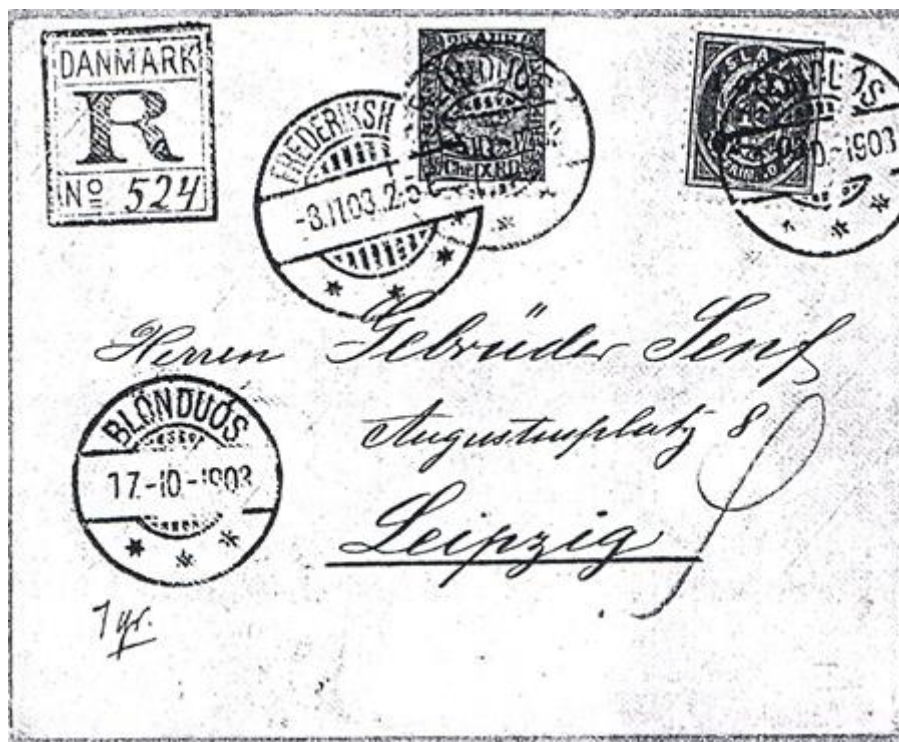 DANMARK
R
Nº 524
FREDERIKSH
-3.11.03.
-1903
Herren Gebrüder Senf
Augustusplatz 8
Leipzig
BLÖNDUÓS
17.-10.-1903
7 gr.